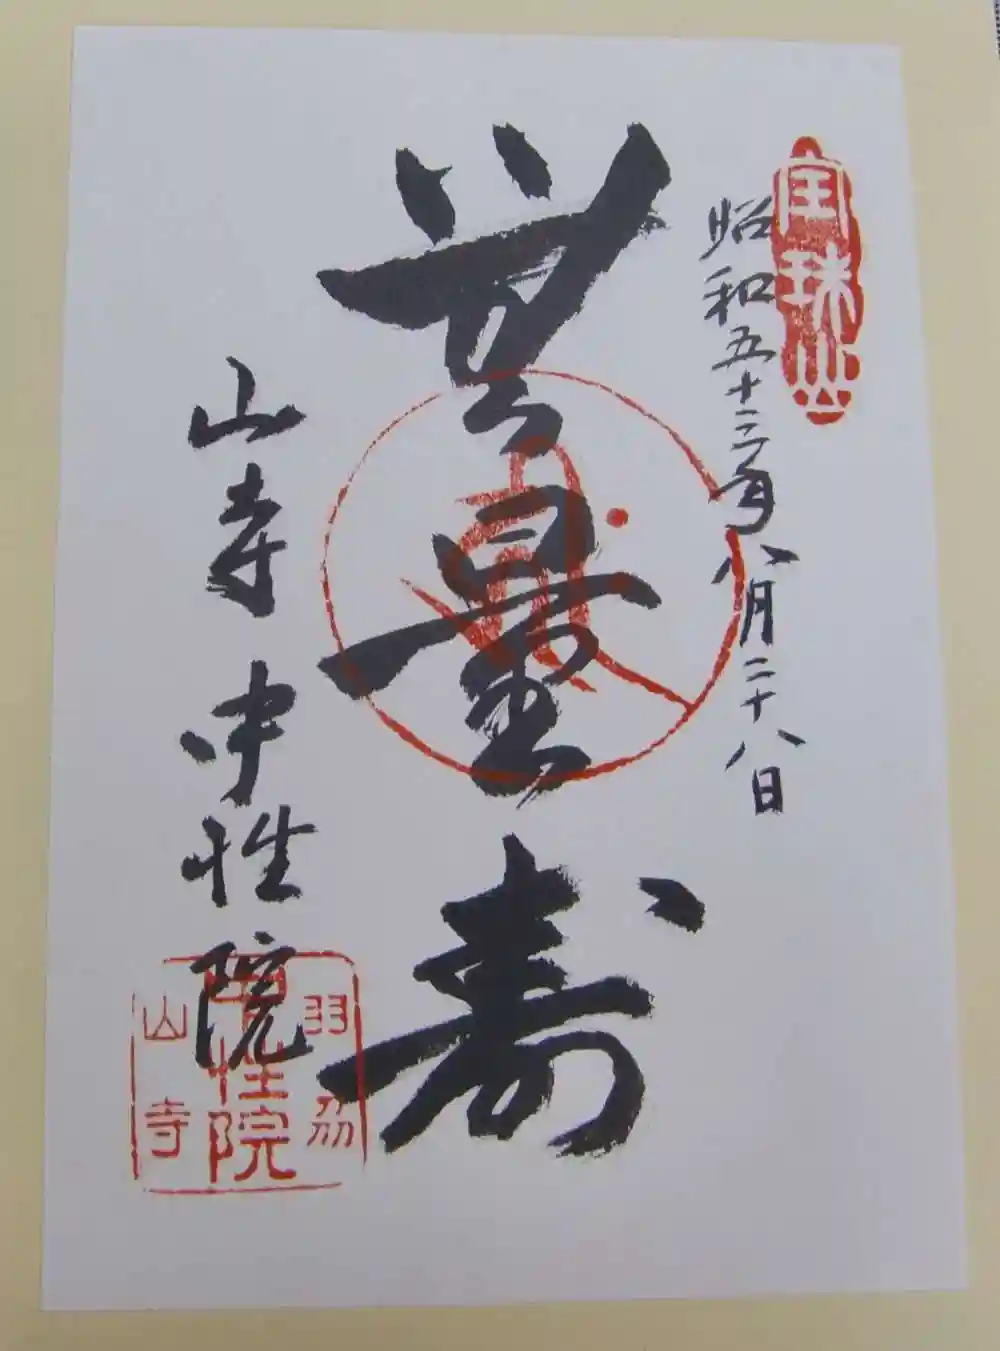 宝珠山
昭和五十三年八月二十八日
無量寿
山寺中性院
羽州
中性院
山寺